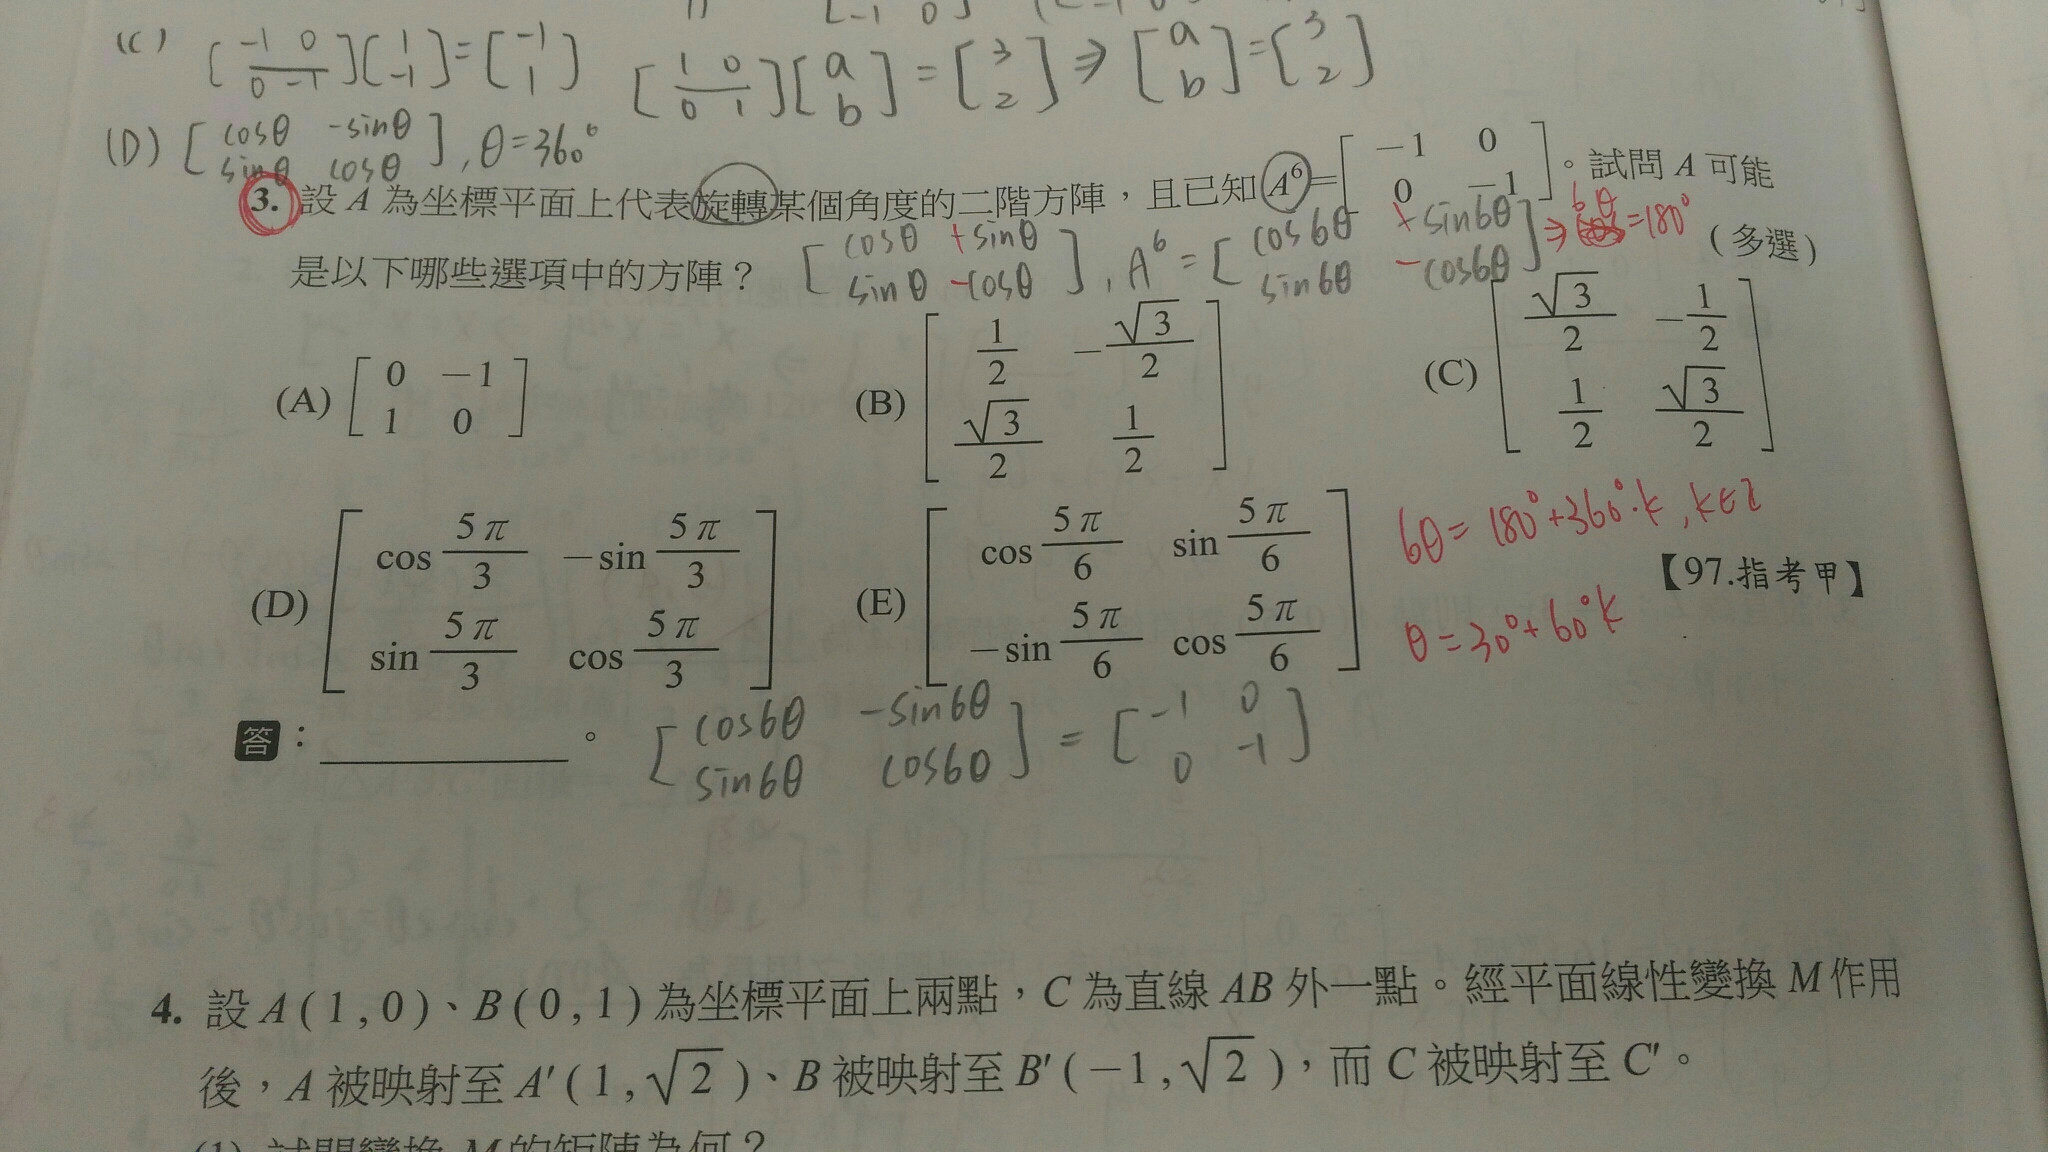 (C) [-1 0 / 0 -1][1 / -1]=[-1 / 1] [1 0 / 0 1][a / b]=[3 / 2]⇒[a / b]=[3 / 2]
(D) [cosθ -sinθ / sinθ cosθ], θ=360°
3. 設 A 為坐標平面上代表旋轉某個角度的二階方陣，且已知 A⁶=[-1 0 / 0 -1]。試問 A 可能
是以下哪些選項中的方陣？ (多選)
[cosθ +sinθ / sinθ -cosθ], A⁶=[cos6θ +sin6θ / sin6θ -cos6θ]⇒6θ=180°
(A) [0 -1 / 1 0] (B) [1/2 -√3/2 / √3/2 1/2] (C) [√3/2 -1/2 / 1/2 √3/2]
(D) [cos 5π/3 -sin 5π/3 / sin 5π/3 cos 5π/3] (E) [cos 5π/6 sin 5π/6 / -sin 5π/6 cos 5π/6]
6θ=180°+360°·k, k∈Z
【97.指考甲】
θ=30°+60°k
答：。
[cos6θ -sin6θ / sin6θ cos6θ]=[-1 0 / 0 -1]
4. 設 A(1,0)、B(0,1)為坐標平面上兩點，C 為直線 AB 外一點。經平面線性變換 M 作用
後，A 被映射至 A′(1,√2)、B 被映射至 B′(-1,√2)，而 C 被映射至 C′。
(1) 試問變換 M 的矩陣為何？